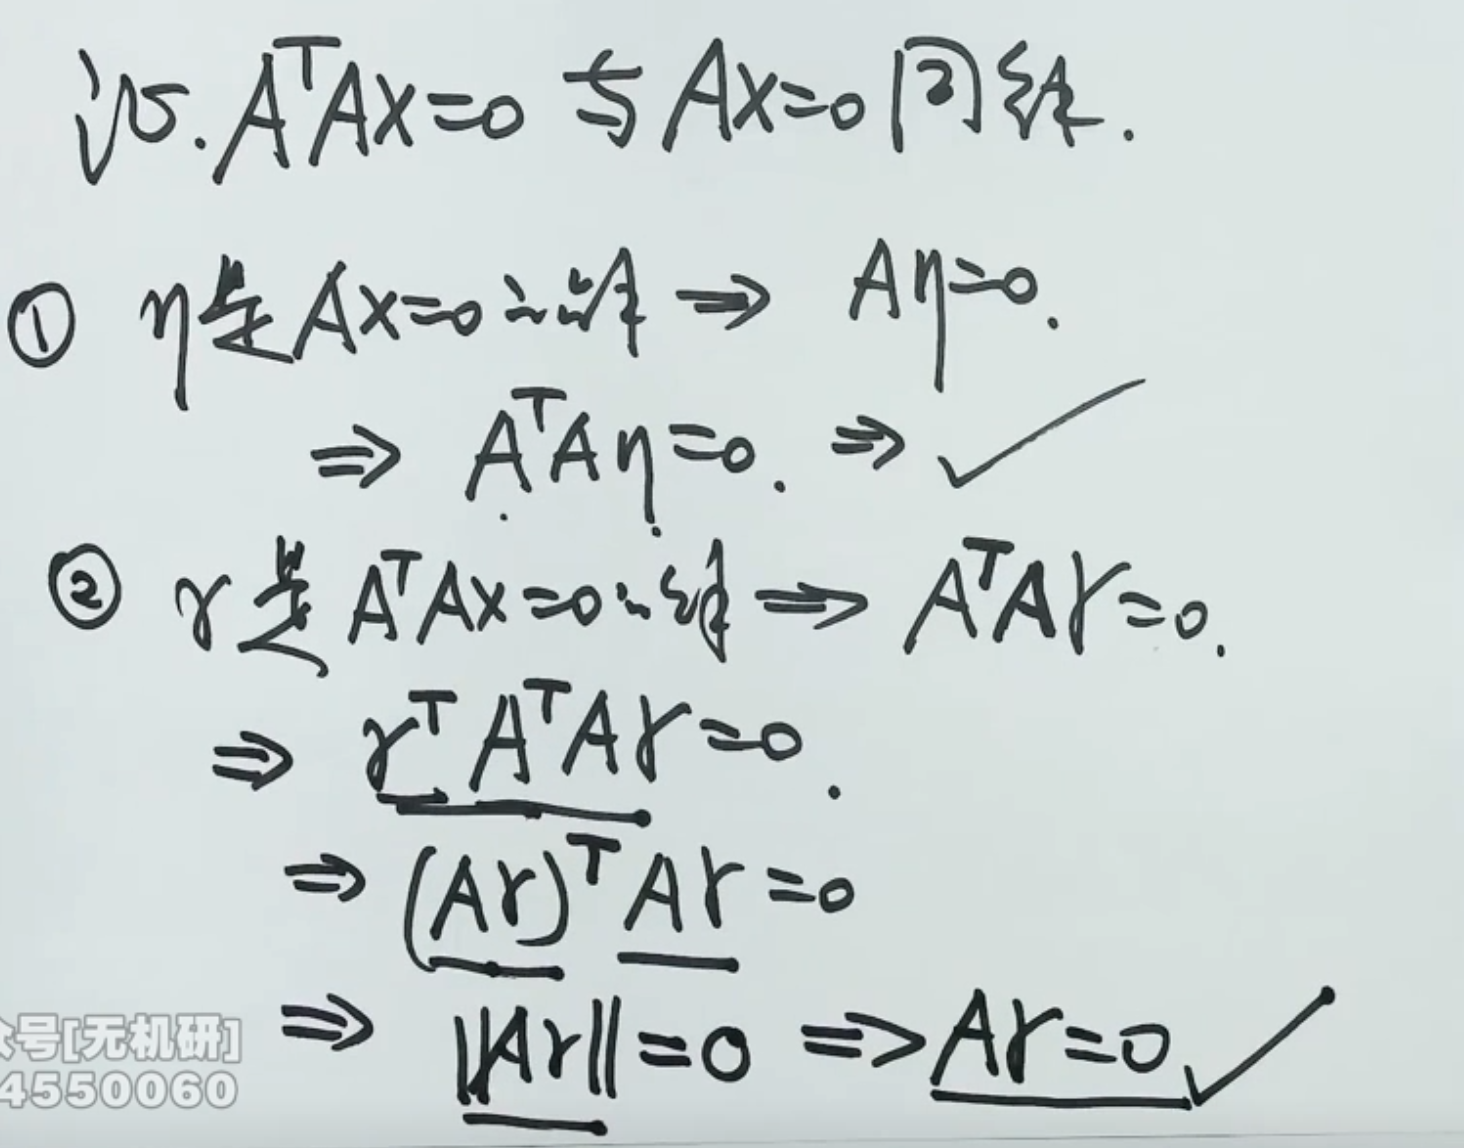 证. AᵀAx=0 与 Ax=0 同解.
① η是Ax=0之解 ⇒ Aη=0.
⇒ AᵀAη=0. ⇒ ✓
② γ是 AᵀAx=0之解 ⇒ AᵀAγ=0.
⇒ γᵀAᵀAγ=0.
⇒ (Aγ)ᵀAγ=0
⇒ ||Aγ||=0 ⇒ Aγ=0 ✓
号[无机研]
4550060